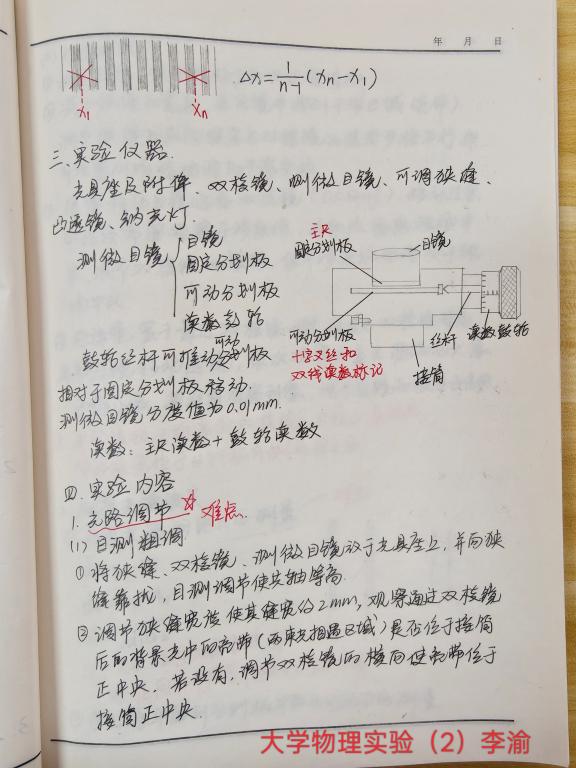 年 月 日
Δx = 1/(n-1) (xn - x1)
x1 xn
三、实验仪器.
光具座及附件、双棱镜、测微目镜、可调狭缝、
凸透镜、钠光灯.
测微目镜
目镜
固定分划板
可动分划板
读数鼓轮
主尺
固定分划板
目镜
可动分划板
十字叉丝和
双线读数标记
丝杆
读数鼓轮
接筒
可动
鼓轮丝杆可推动分划板
相对于固定分划板移动.
测微目镜分度值为0.01mm.
读数: 主尺读数+鼓轮读数
四. 实验内容
1. 光路调节 ☆ 难点.
(1) 目测粗调
① 将狭缝、双棱镜、测微目镜放于光具座上, 并向狭
缝靠拢, 目测调节使共轴等高.
② 调节狭缝宽度使其缝宽约2mm, 观察通过双棱镜
后的背景光中的亮带(两束光相遇区域)是否位于接筒
正中央. 若没有, 调节双棱镜的棱向使亮带位于
接筒正中央.
大学物理实验（2）李渝